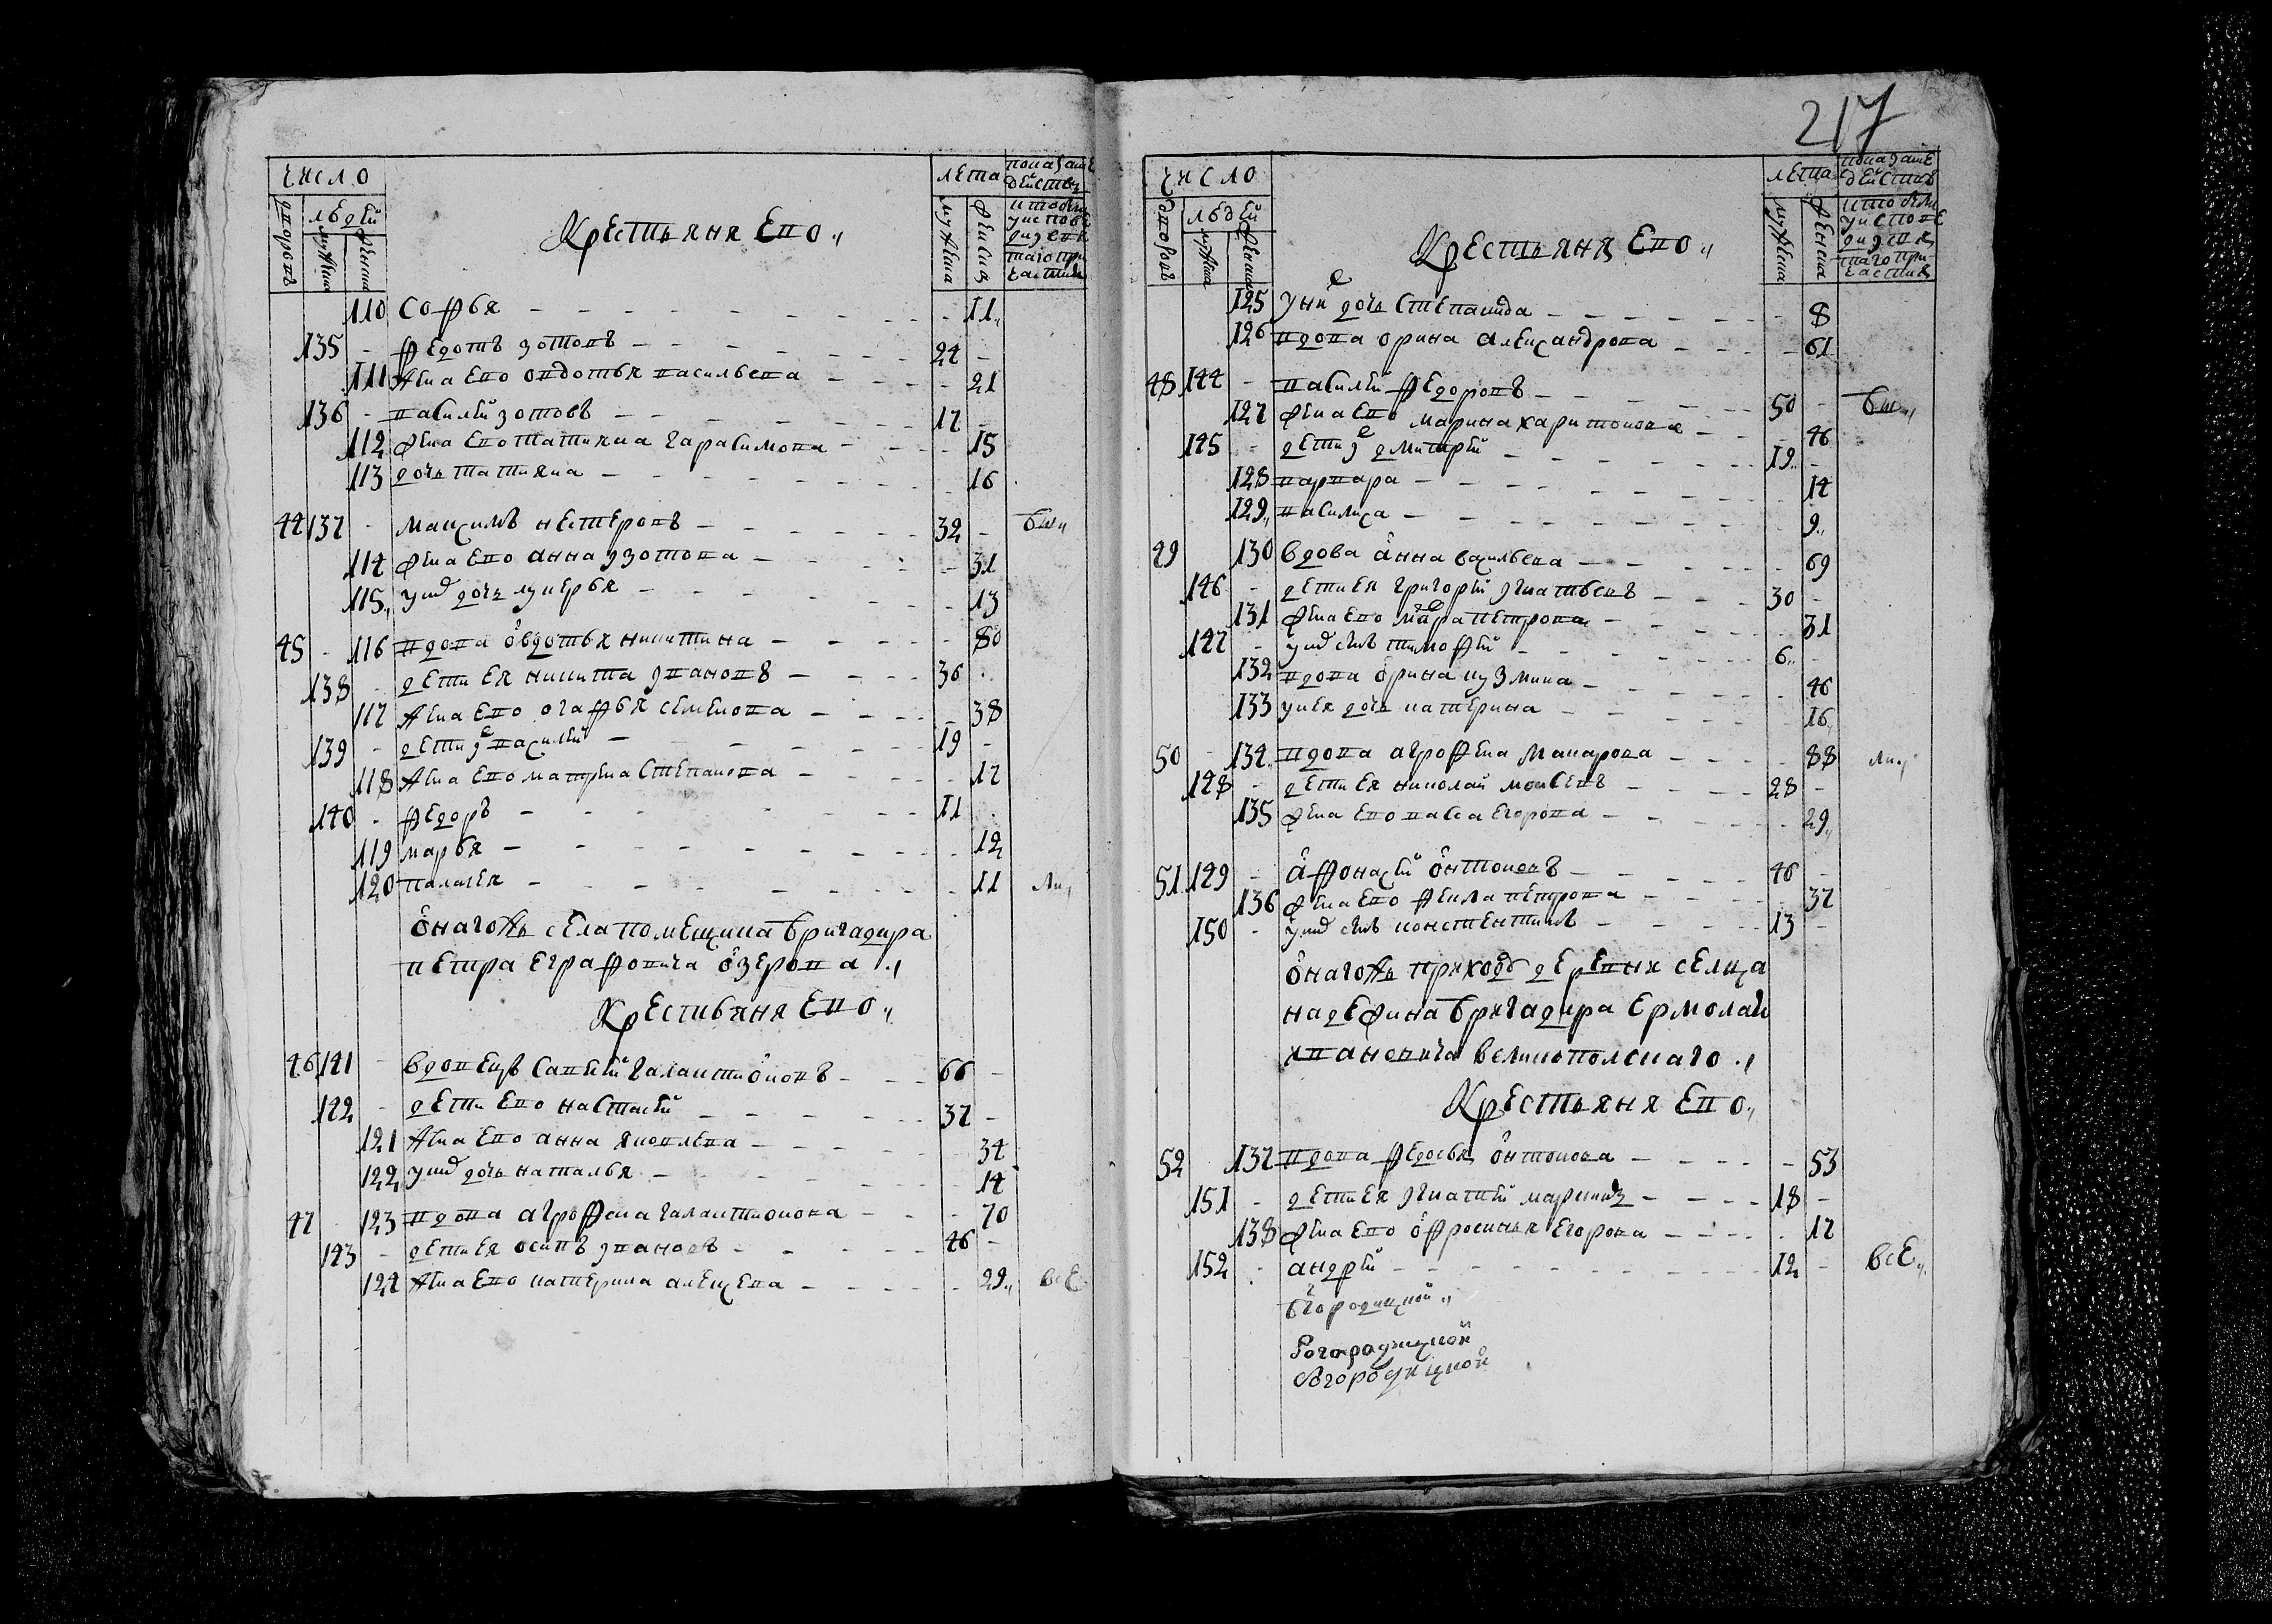 217
число
лета
показание действ
дворовъ
людей
мужеска
женска
мужеска
женска
Крестьяня Ево
110 Софья 11
135 Федотъ Зотовъ 24
111 Жена ево Овдотья Васильева 21
136 Василей Зотовъ 17
112 Жена ево Татияна Гарасимова 15
113 дочь Татияна 16
44 137 Максимъ Нестеровъ 32 бы
114 Жена ево Анна Изотова 31
115 У них дочь Лукерья 13
45 116 Вдова Овдотья Никитина 80
138 Дети ея Никита Иванов 36
117 Жена ево Огафья Семенова 38
139 Дети их Василей 19
118 Жена ево Матрена Степанова 17
140 Федоръ 11
119 Марья 12
120 Палагея 11 ли
Онагожъ села помещика Бригадира
Петра Еграфовича Озерова
Крестьяня Ево
46 141 Вдовецъ Савелей Галактионовъ 66
142 Дети ево Настасей 37
121 Жена ево Анна Яковлева 34
122 У них дочь Наталья 14
47 123 Вдова Агрофена Галактионова 70
143 Дети ея Осипъ Ивановъ 46
124 Жена ево Катерина Алексева 29 все
число
лета
показание действ
дворовъ
людей
мужеска
женска
мужеска
женска
Крестьяня Ево
125 У них дочь Степанида 8
126 Вдова Орина Александрова 61
48 144 Василей Федоровъ 50 бы
127 Жена ево Марина Харитонова 46
145 Дети их Дмитрей 19
128 Варвара 14
129 Василиса 9
49 130 Вдова Анна Васильева 69
146 Дети ея Григорей Игнатьевъ 30
131 Жена ево Петрова 31
147 У них сынъ Тимофей 6
132 Вдова Орина Кузмина 46
133 У нея дочь Катерина 16
50 134 Вдова Агрофена Макарова 88 ли
148 Дети ея Николай Моисевъ 28
135 Жена ево Васса Егорова 29
51 149 Афонасей Онтоновъ 46
136 Жена ево Акилина Петрова 37
150 У них сынъ Констентинъ 13
Онагожъ приходу деревни селца
Надежина Бригадира Ермолая
Ивановича Великопольскаго
Крестьяня Ево
52 137 Вдова Федосья Онтонова 53
151 Дети ея Игнатей Маркинъ 18
138 Жена ево Офросинья Егорова 17
152 Андрей 12 все
Богородицкой
Богарадицкой
Богородицкой